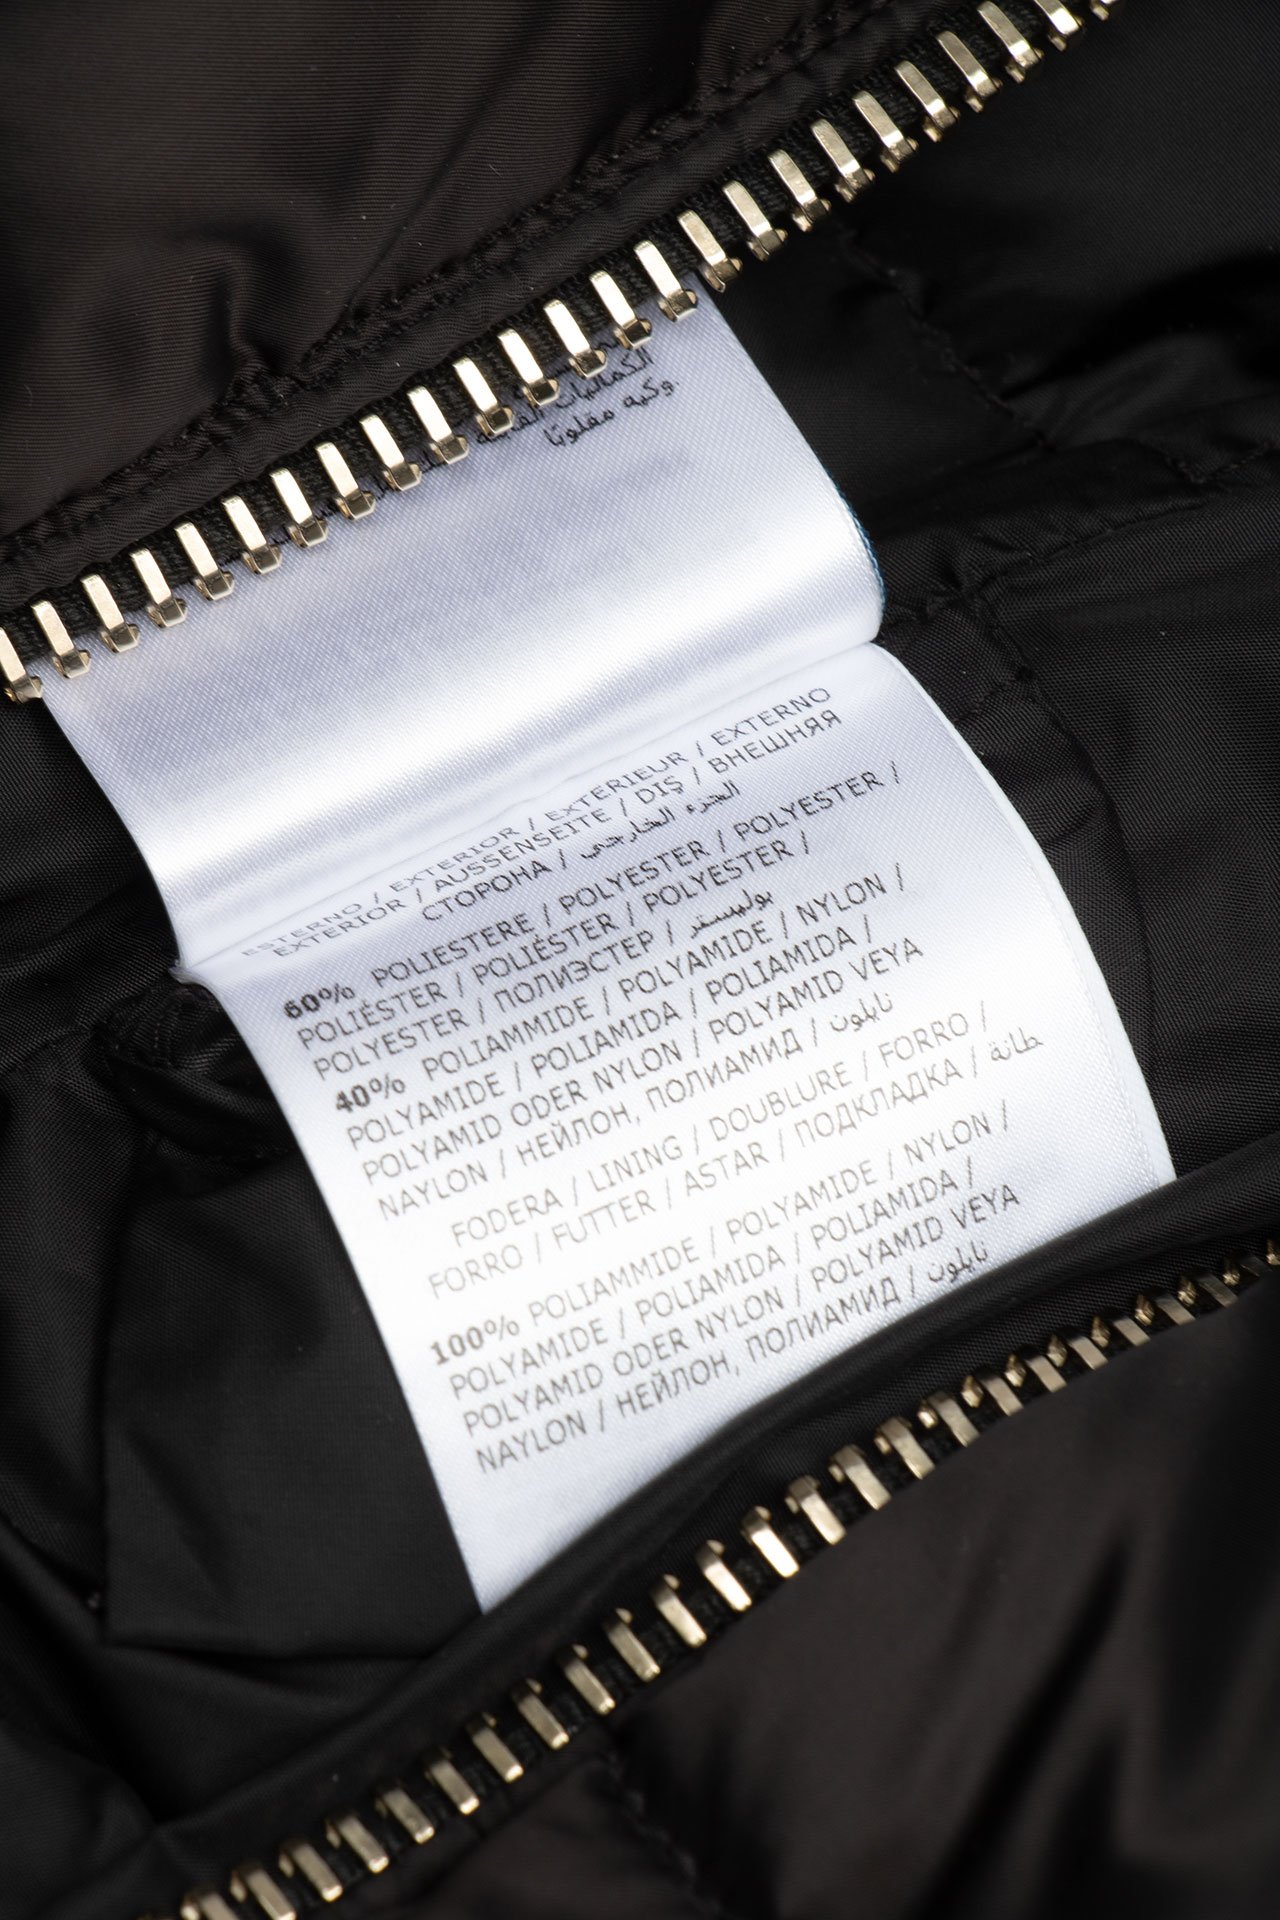 الكماليات
وكيه مقلوبًا.
ESTERNO / EXTERIOR / EXTÉRIEUR / EXTERNO
EXTERIOR / AUSSENSEITE / DIŞ / ВНЕШНЯЯ
СТОРОНА / الجزء الخارجي
60% POLIESTERE / POLYESTER / POLYESTER /
POLIÉSTER / POLIÉSTER / POLYESTER /
POLYESTER / ПОЛИЭСТЕР / بوليستر
40% POLIAMMIDE / POLYAMIDE / NYLON /
POLYAMIDE / POLIAMIDA / POLIAMIDA /
POLYAMID ODER NYLON / POLYAMID VEYA
NAYLON / НЕЙЛОН, ПОЛИАМИД / نايلون
FODERA / LINING / DOUBLURE / FORRO /
FORRO / FUTTER / ASTAR / ПОДКЛАДКА / طانة
100% POLIAMMIDE / POLYAMIDE / NYLON /
POLYAMIDE / POLIAMIDA / POLIAMIDA /
POLYAMID ODER NYLON / POLYAMID VEYA
NAYLON / НЕЙЛОН, ПОЛИАМИД / نايلون